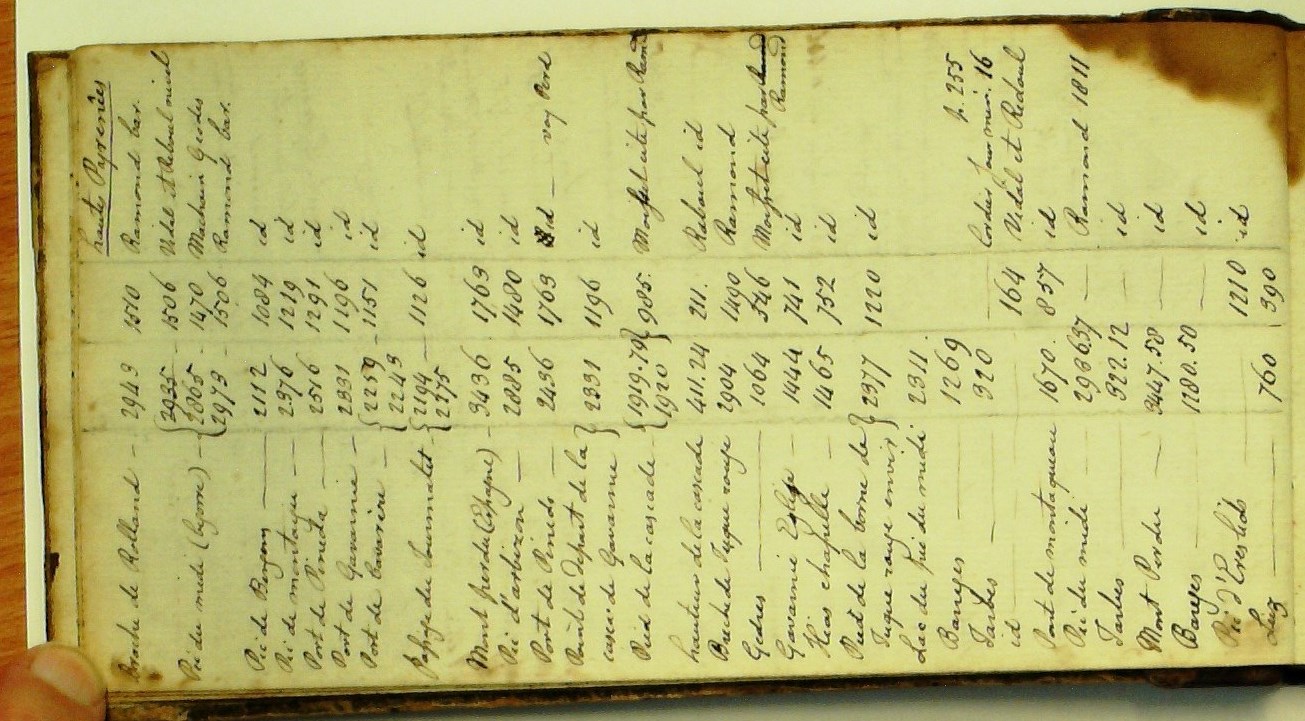 hautes Pyrenées
Breche de Rolland - 2943 - 1510 Ramond bar.
{2935 - 1506 Vidal et Reboul nivel
Pic du midi (bigorre) - {2865 - 1470 Mechain Geodes
{2973 - 1506 Ramond bar.
Pic de Bergons — 2112 1084 id
Pic de montaigu — 2376 1219 id
Port de Pineda — 2516 1291 id
Port de Gavarnie — 2331 1196 id
Port de — {2259 - 1151 id
{2243
Passage du Tourmalet - {2194 - 1126 id
{2175
Mont perdu (Espagne) - 3436 - 1763 id
Pic d'arbizon — 2885 1480 id
Port de Pinede — 2436 1763 id — voy Port
Point de depart de la }
cascade de Gavarnie } 2331 1196 id
Pied de la cascade - {1919.79} 985. cité par Ramond
{1920
hauteur de la cascade 411.24 211. Reboul id
Breche de Tuque rouge 2904 1490 Ramond
Gedres — 1064 546 cité par Ramond
Gavarnie Eglise - 1444 741 id
Heas chapelle - 1465 752 id
Pied de la borne de }
Tuque rouge envir. } 2377 1220 id
Lac du pic du midi 2311.
Bareges — 1269
Tarbes — 320 — Cordier Jour. min. 16 p. 255
id — 164 Vidal et Reboul
Pont de montaqueou 1670. 857 id
Pic du midi — 2936.37 — Ramond 1811
Tarbes 322.12 — id
Mont Perdu — 3447.58 — id
Bareges — 1280.50 — id
Pic d'Ereslids 1210 id
Luz — 760 390